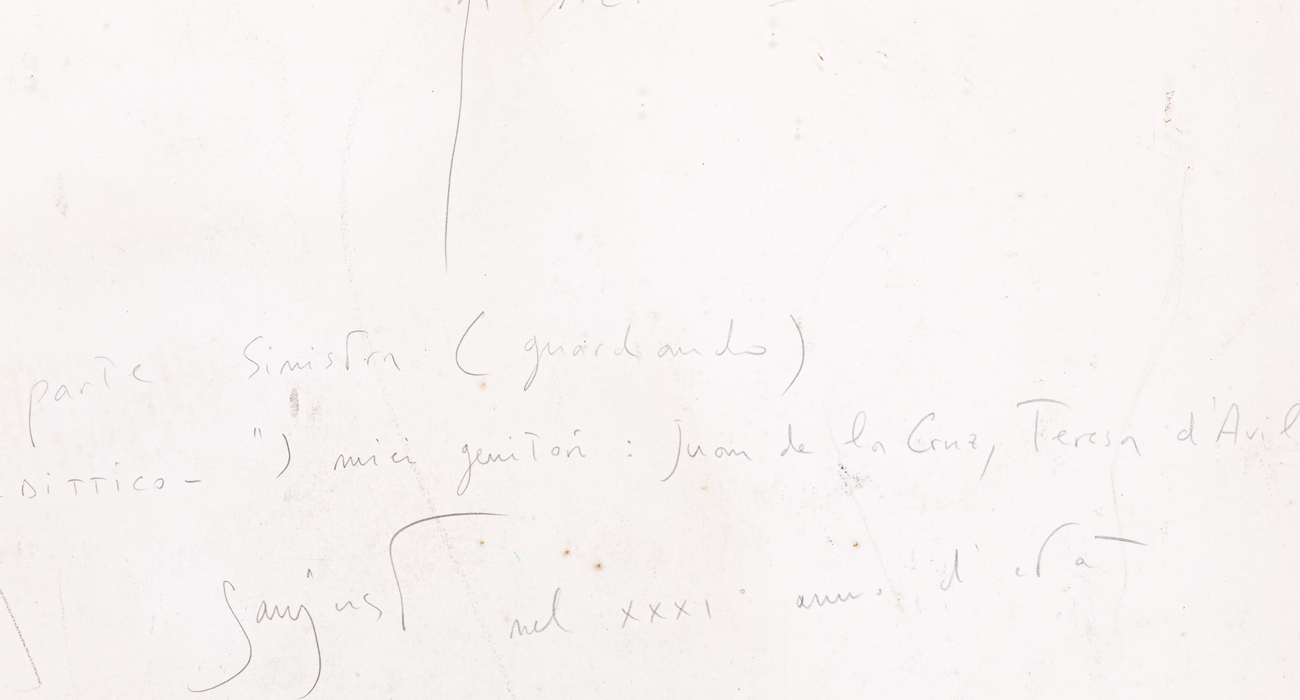 parte sinistra (guardando)
- DITTICO - ") miei genitori : Juan de la Cruz, Teresa d'Avil
Sanjust nel XXXI° anno d'età